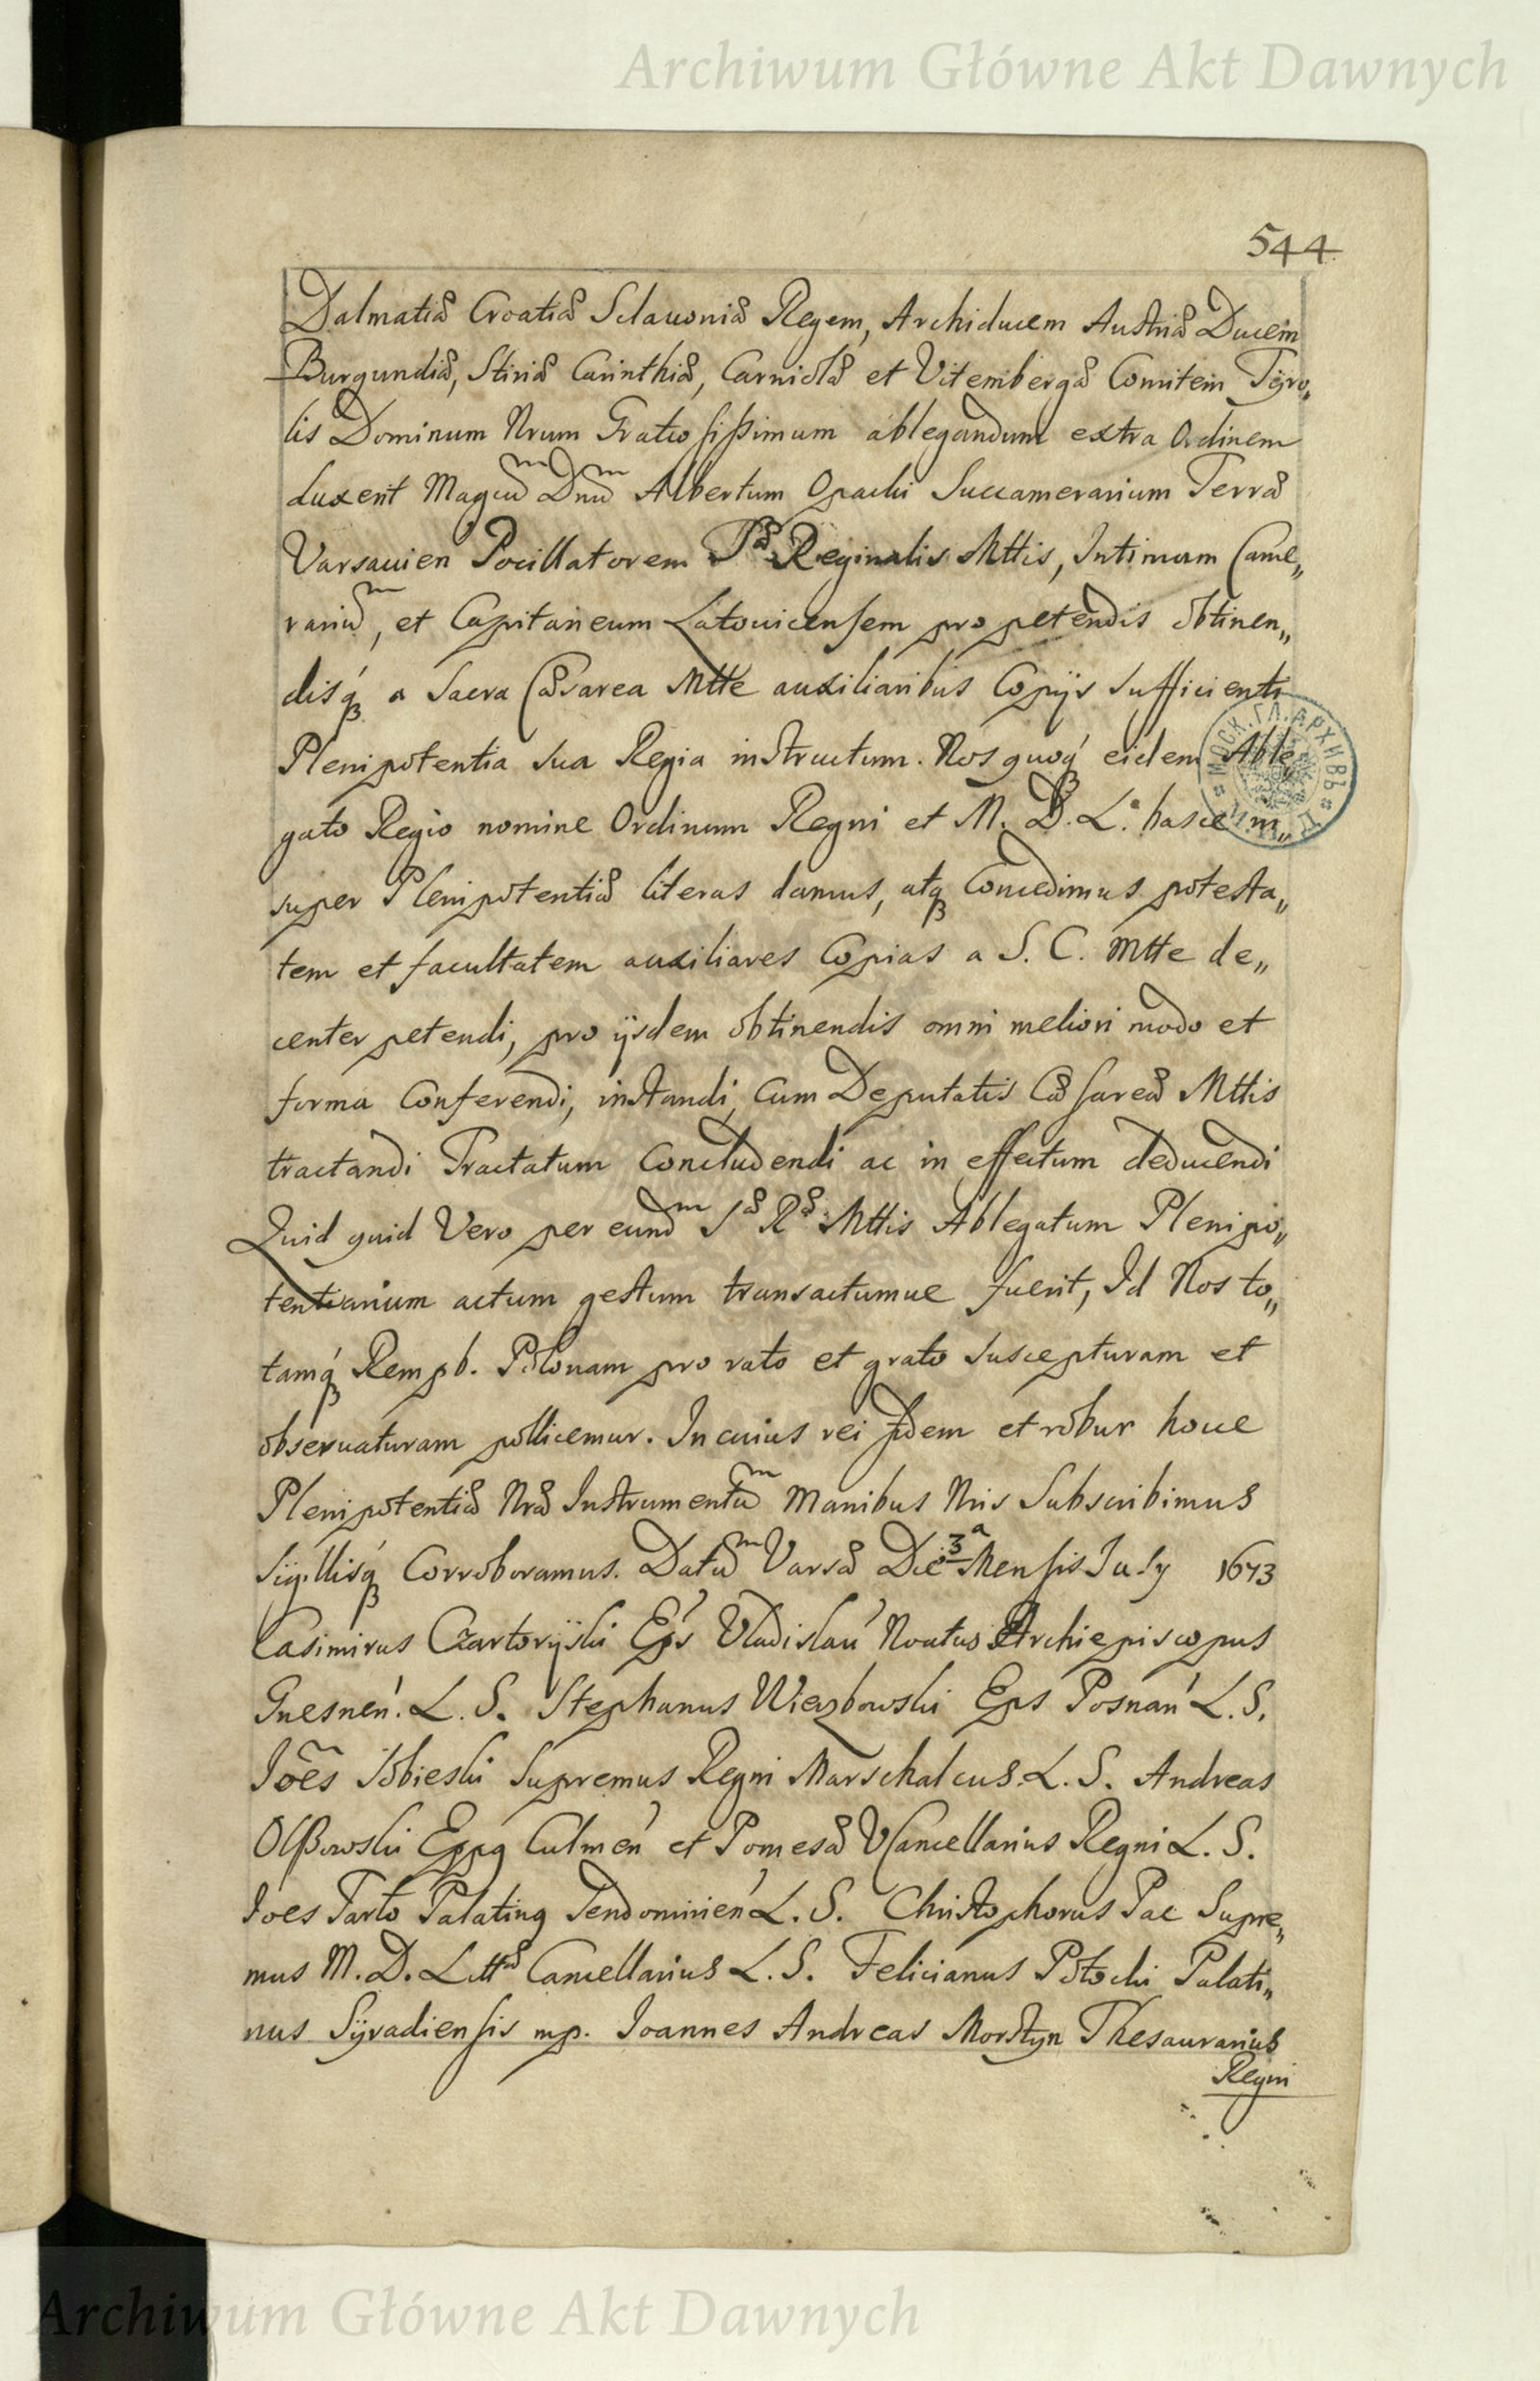 Archiwum Główne Akt Dawnych
544
Dalmatiæ Croatiæ Sclauoniæ Regem, Archiducem Austriæ Ducem
Burgundiæ, Stiriæ Carinthiæ, Carniolæ et Vitembergæ Comitem Tÿro„
lis Dominum Nrum Gratiosißimum ablegandum extra Ordinem
duxerit Magcuᵐ Dnuᵐ Albertum Opacki Succamerarium Terræ
Varsauien Pocillatorem Sæ Reginalis Mttis, Intimum Came„
rariuᵐ, et Capitaneum Latouicensem pro petendis obtinen„
disq́ a Sacra Cæsarea Mtte auxiliaribus Copijs sufficienti
Plenipotentia sua Regia instructum. Nos quoq́ eidem Able„
gato Regio nomine Ordinum Regni et M. D. L. hasce in„
super Plenipotentiæ literas damus, atq Concedimus potesta„
tem et facultatem auxiliares Copias a S. C. Mtte de„
center petendi, pro ijsdem obtinendis omni meliori modo et
forma Conferendi, instandi, Cum Deputatis Cæsareæ Mttis
tractandi Tractatum Concludendi ac in effectum deducendi
Quid quid Vero per eundᵐ Sæ Ræ Mttis Ablegatum Plenipo„
tentiarium actum gestum transactumue fuerit, Id Nos to„
tamq́ Rempb. Polonam pro rato et grato suscepturam et
obseruaturam pollicemur. In cuius rei fidem et robur hocce
Plenipotentiæ Nræ Instrumentuᵐ Manibus Nris Subscribimus
Sigillisq́ Corroboramus. Datuᵐ Varsæ Die 3ᵃ Mensis July 1673
Casimirus Czartorÿski Eps̀ Vladislau̓ Noatus Archiepiscopus
Gnesnen̓. L. S. Stephanus Wierzbowski Eps Posnan̓ L. S.
Joẽs Sobieski Supremus Regni Marschalcus. L. S. Andreas
Olßowski Eppq Culmen̓ et Pomesæ VCancellarius Regni L. S.
Joes Tarło Palatinq Sendomirien̓ L. S. Christophorus Pac Supre„
mus M. D. Littæ Cancellarius L. S. Felicianus Potocki Palati„
nus Sÿradiensis mp. Joannes Andreas Morstyn Thesaurarius
Regni
Archiwum Główne Akt Dawnych